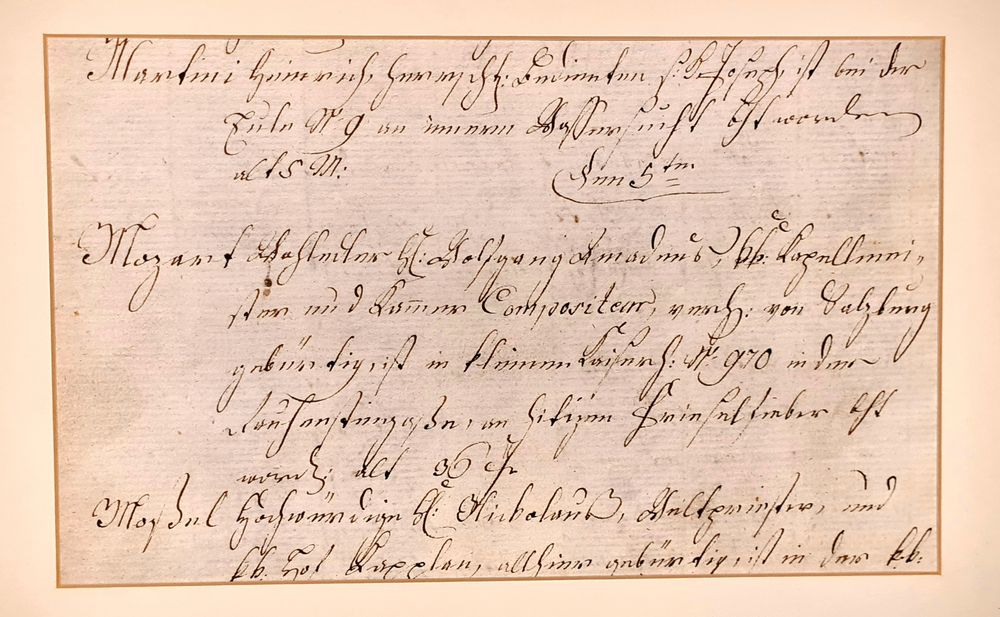 Martini Heinrich, herrschl: Bedienten s: K: Joseph, ist bei der
Eule N° 9 an innern Wassersucht bst worden
alt 5 M:
Den 5ten
Mozart Wohledler H: Wolfgang Amadeus, kk: Kapellmei-
ster und Kam̄er Compositeur, verh: von Salzburg
gebürtig, ist in kleinen Kaiserh: N° 970 in der
Rauhensteingaße, an hitzigen Frieselfieber bst
word: alt 36 J.
Moßel Hochwürdige H: Nickolaus, Weltpriester, und
kk: Hof Kapplan, allhier gebürtig, ist in der kk: